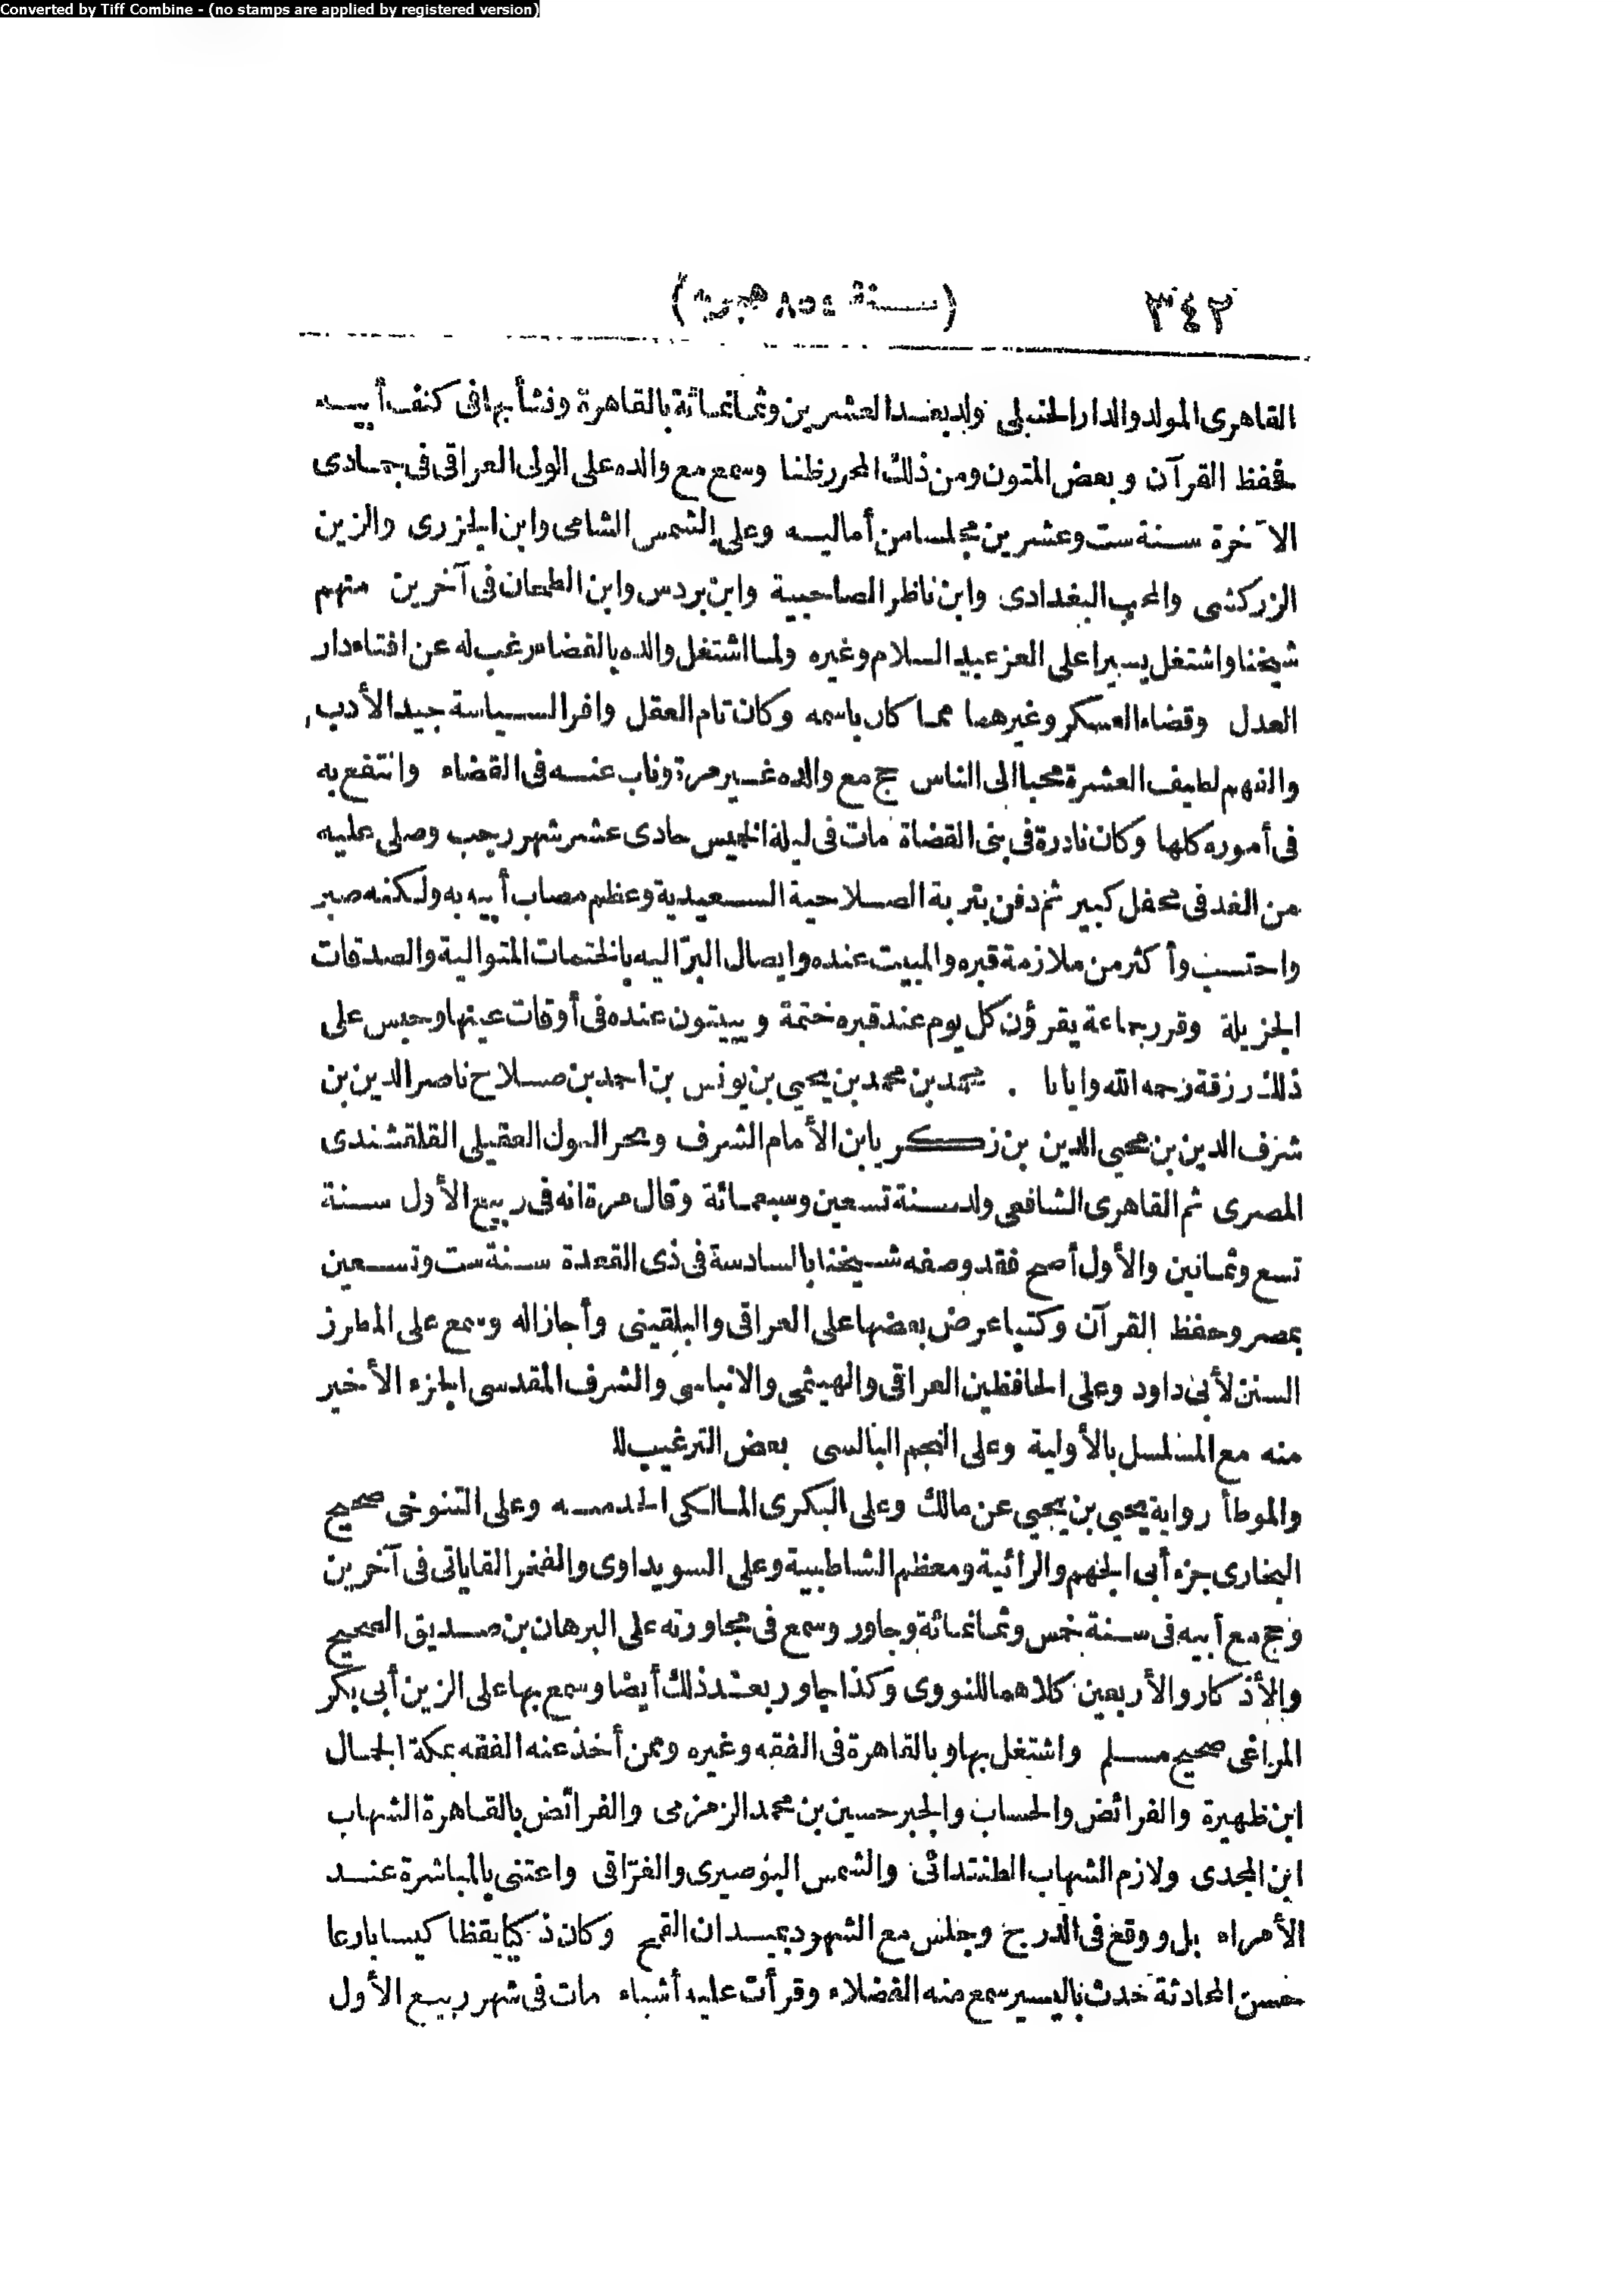 Converted by Tiff Combine - (no stamps are applied by registered version)
٣٤٢ (سنة ٨٥٤ هجرية)
القاهرى المولد والدار الحنبلى ولد بعد العشرين وثمانمائة بالقاهرة ونشأ بها فى كنف أبيه
فحفظ القرآن وبعض المتون ومن ذلك المحرر ظنا وسمع مع والده على الولى العراقى فى جمادى
الآخرة سنة ست وعشرين مجلسا من أماليه وعلى الشمس الشامى وابن الجزرى والزين
الزركشى والمحب البغدادى وابن ناظر الصاحبية وابن بردس وابن الطحان فى آخرين منهم
شيخنا واشتغل يسيرا على العز عبد السلام وغيره ولما اشتغل والده بالقضاء رغب له عن افتاء دار
العدل وقضاء العسكر وغيرهما مما كان باسمه وكان تام العقل وافر السياسة جيد الأدب
والفهم لطيف العشرة محببا الى الناس حج مع والده غير مرة وناب عنه فى القضاء وانتفع به
فى أموره كلها وكان نادرة فى بنى القضاة مات فى ليلة الخميس حادى عشر شهر رجب وصلى عليه
من الغد فى محفل كبير ثم دفن بتربة الصلاحية السعيدية وعظم مصاب أبيه به ولكنه صبر
واحتسب وأكثر من ملازمة قبره والمبيت عنده وايصال البرّ اليه بالختمات المتوالية والصدقات
الجزيلة وقرر جماعة يقرؤن كل يوم عند قبره ختمة ويبيتون عنده فى أوقات عينها وحبس على
ذلك رزقة رحمه الله وايانا . محمد بن محمد بن يحيى بن يونس بن احمد بن صلاح ناصر الدين بن
شرف الدين بن محيى الدين بن زكريا بن الأمام الشرف وبحر البول العقيلى القلقشندى
المصرى ثم القاهرى الشافعى ولد سنة تسعين وسبعمائة وقال مرة انه فى ربيع الأول سنة
تسع وثمانين والأول أصح فقد وصفه شيخنا بالسادسة فى ذى القعدة سنة ست وتسعين
بمصر وحفظ القرآن وكتبا عرض بعضها على العراقى والبلقينى وأجازاله وسمع على المطرز
السنن لأبى داود وعلى الحافظين العراقى والهيثمى والانباسى والشرف المقدسى الجزء الأخير
منه مع المسلسل بالأولية وعلى النجم البالسى بعض الترغيب لل
والموطأ رواية يحيى بن يحيى عن مالك وعلى البكرى المالكى وعلى التنوخى صحيح
البخارى جزء أبى الجهم والرائية ومعظم الشاطبية وعلى السويداوى والفخر القاياتى فى آخرين
وحج مع أبيه فى سنة خمس وثمانمائة وجاور وسمع فى مجاورته على البرهان بن صديق الصحيح
والأذكار والأربعين كلاهما للنووى وكذا جاور بعد ذلك أيضا وسمع بها على الزين أبى بكر
المراغى صحيح مسلم واشتغل بها وبالقاهرة فى الفقه وغيره وممن أخذ عنه الفقه بمكة الجمال
ابن ظهيرة والفرائض والحساب والجبر حسين بن محمد الزمزمى والفرائض بالقاهرة الشهاب
ابن المجدى ولازم الشهاب الطنتدائى والشمس البوصيرى والغرّاقى واعتنى بالمباشرة عند
الأمراء بل ووقع فى الدرج وجلس مع الشهود بميدان القمح وكان ذكيا يقظا كيسا بارعا
حسن المحادثة حدث باليسير سمع منه الفضلاء وقرأت عليه أشياء مات فى شهر ربيع الأول